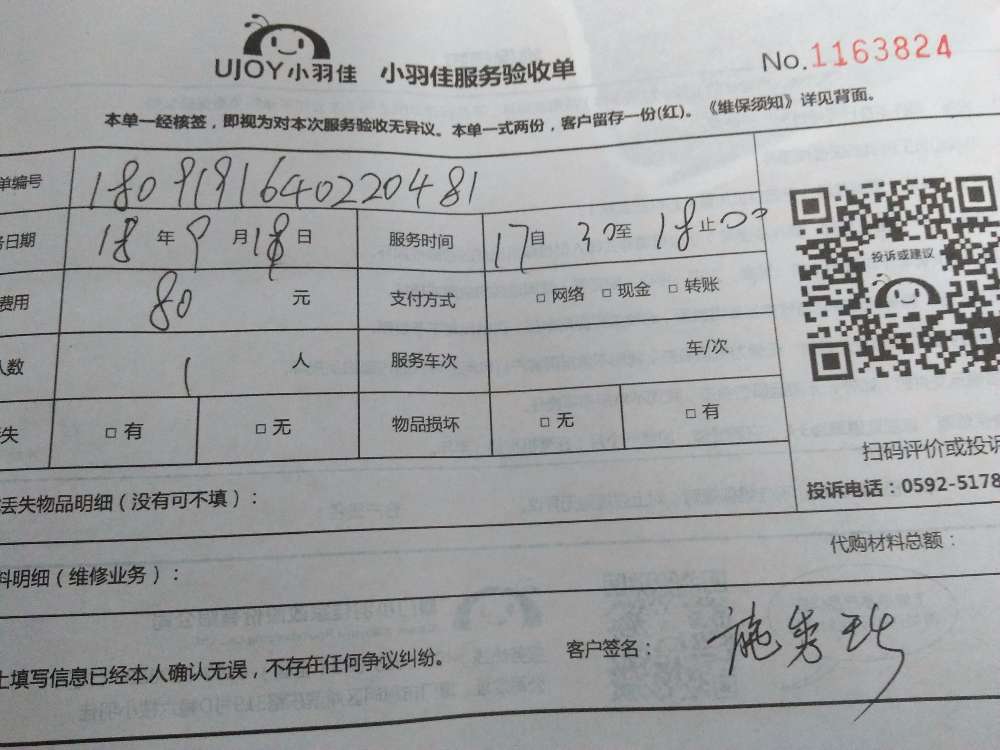 UJOY小羽佳 小羽佳服务验收单 No.1163824
本单一经核签，即视为对本次服务验收无异议。本单一式两份，客户留存一份(红)。《维保须知》详见背面。
单编号 180919164022048１
务日期 18 年 9 月 18 日 服务时间 17 自 30 至 18 止 00
费用 80 元 支付方式 □ 网络 □ 现金 □ 转账
人数 1 人 服务车次 车/次
失 □ 有 □ 无 物品损坏 □ 无 □ 有
投诉或建议
扫码评价或投诉
投诉电话：0592-5178
丢失物品明细（没有可不填）：
代购材料总额：
料明细（维修业务）：
上填写信息已经本人确认无误，不存在任何争议纠纷。
客户签名： 施秀